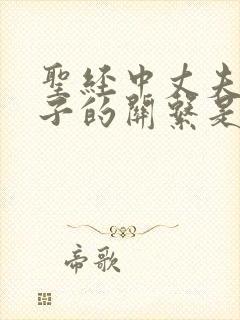 聖經中丈夫
子的關繫是
帝歌